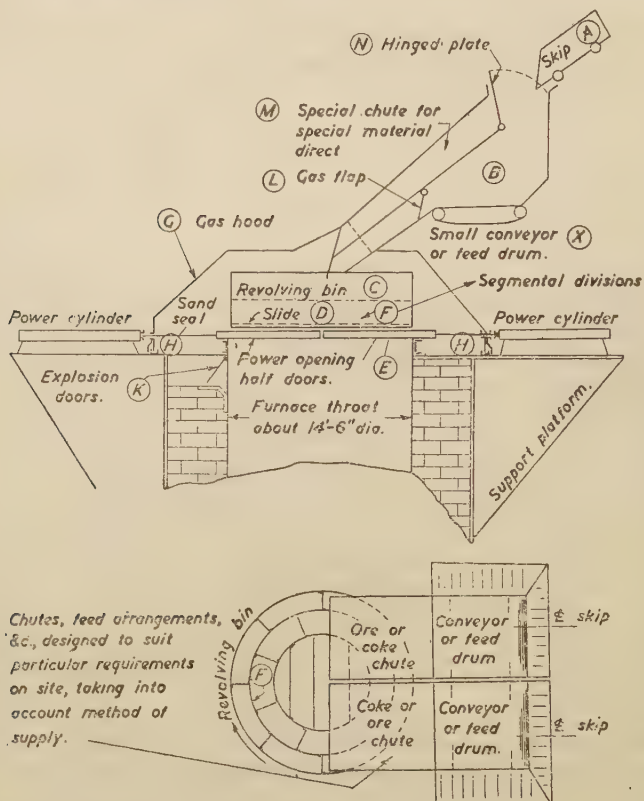 A
Skip
N Hinged plate
M Special chute for
special material
direct
L Gas flap
B
G Gas hood
Small conveyor X
or feed drum.
Revolving bin C
Segmental divisions
Slide D F
Sand
seal
Power cylinder
Power cylinder
H
H
Power opening
half doors.
E
Explosion
doors.
K
Furnace throat
about 14'-6" dia.
Support platform.
Chutes, feed arrangements,
&c., designed to suit
particular requirements
on site, taking into
account method of
supply.
Revolving bin
F
Ore or
coke
chute
Conveyor
or feed
drum
℄ skip
Coke or
ore
chute
Conveyor
or feed
drum.
℄ skip